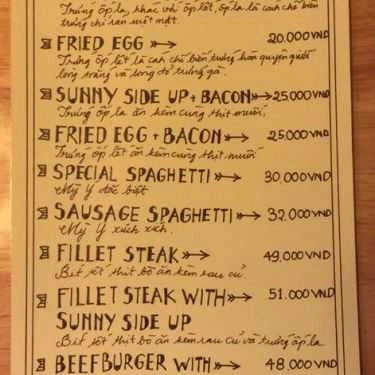 Trứng ốp la, khác với ốp lết, ốp la là cách chế biến
trứng chỉ rán một mặt.
FRIED EGG 20.000 VND
Trứng ốp lết là cách chế biến trứng hòa quyện giữa
lòng trắng và lòng đỏ trứng gà.
SUNNY SIDE UP + BACON 25.000 VND
Trứng ốp la ăn kèm cùng thịt muối.
FRIED EGG + BACON 25.000 VND
Trứng ốp lết ăn kèm cùng thịt muối
SPECIAL SPAGHETTI 30.000 VND
Mỳ Ý đặc biệt
SAUSAGE SPAGHETTI 32.000 VND
Mỳ Ý xúc xích.
FILLET STEAK 49.000 VND
Bít tết thịt bò ăn kèm rau củ.
FILLET STEAK WITH 51.000 VND
SUNNY SIDE UP
Bít tết thịt bò ăn kèm rau củ và trứng ốp la
BEEFBURGER WITH 48.000 VND